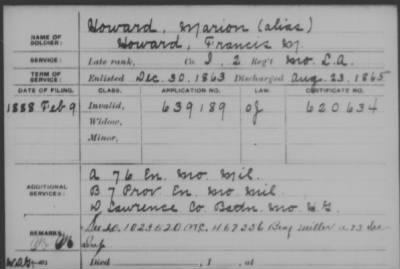 NAME OF SOLDIER: Howard, Marion (alias)
Howard, Francis M.
SERVICE: Late rank, Co. I, 2 Reg't Mo. L.A.
TERM OF SERVICE: Enlisted Dec. 30, 1863 Discharged Aug. 23, 1865
DATE OF FILING. CLASS. APPLICATION NO. LAW. CERTIFICATE NO.
1888 Feb 9 Invalid, 639189 620634
Widow,
Minor,
A 76 En. Mo. Mil.
ADDITIONAL SERVICES: B 7 Prov En. Mo. Mil.
D Lawrence Co Battn. Mo. H.G.
REMARKS: 1023620 467236 Benj Miller
Died , 1 , at